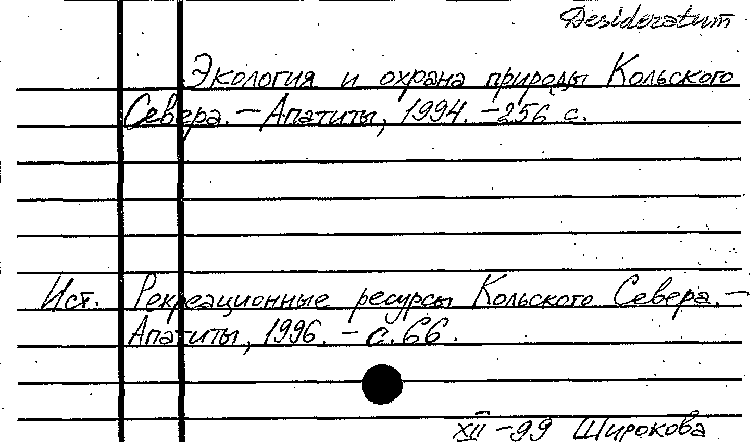 Desideratum
Экология и охрана природы Кольского
Севера. – Апатиты, 1994. – 256 с.
Ист. Рекреационные ресурсы Кольского Севера. –
Апатиты, 1996. – с. 66.
XII – 99 Широкова